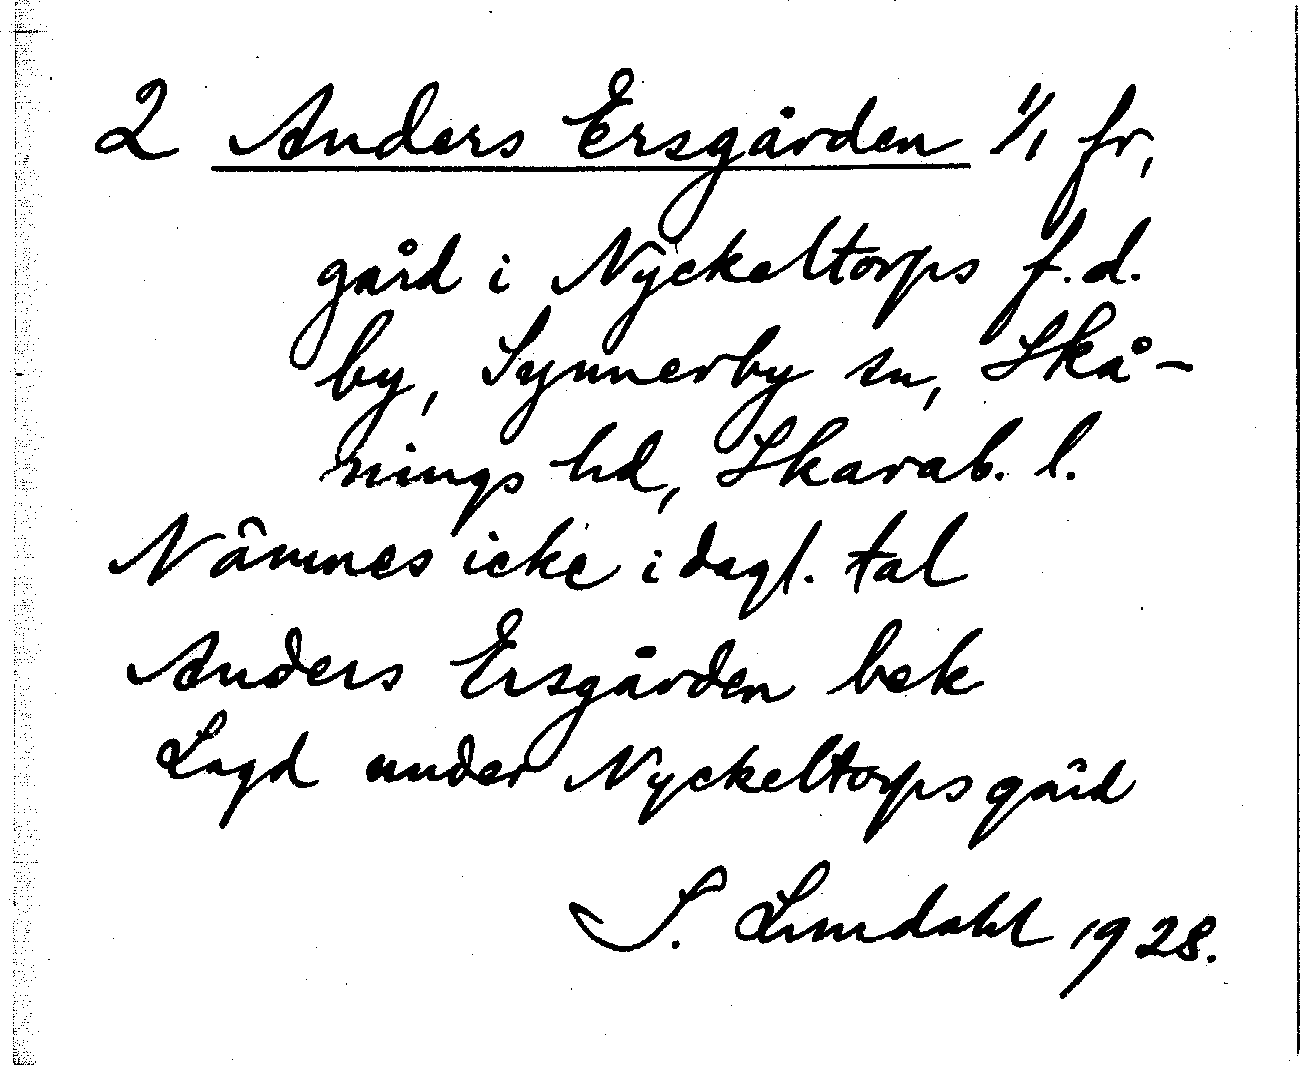 2 Anders Ersgården 1/1 fr,
gård i Nyckeltorps f.d.
by, Synnerby sn, Skå-
nings hd, Skarab. l.
Nämnes icke i dagl. tal
Anders Ersgården bek
Lagd under Nyckeltorps gård
S. Lundahl 1928.